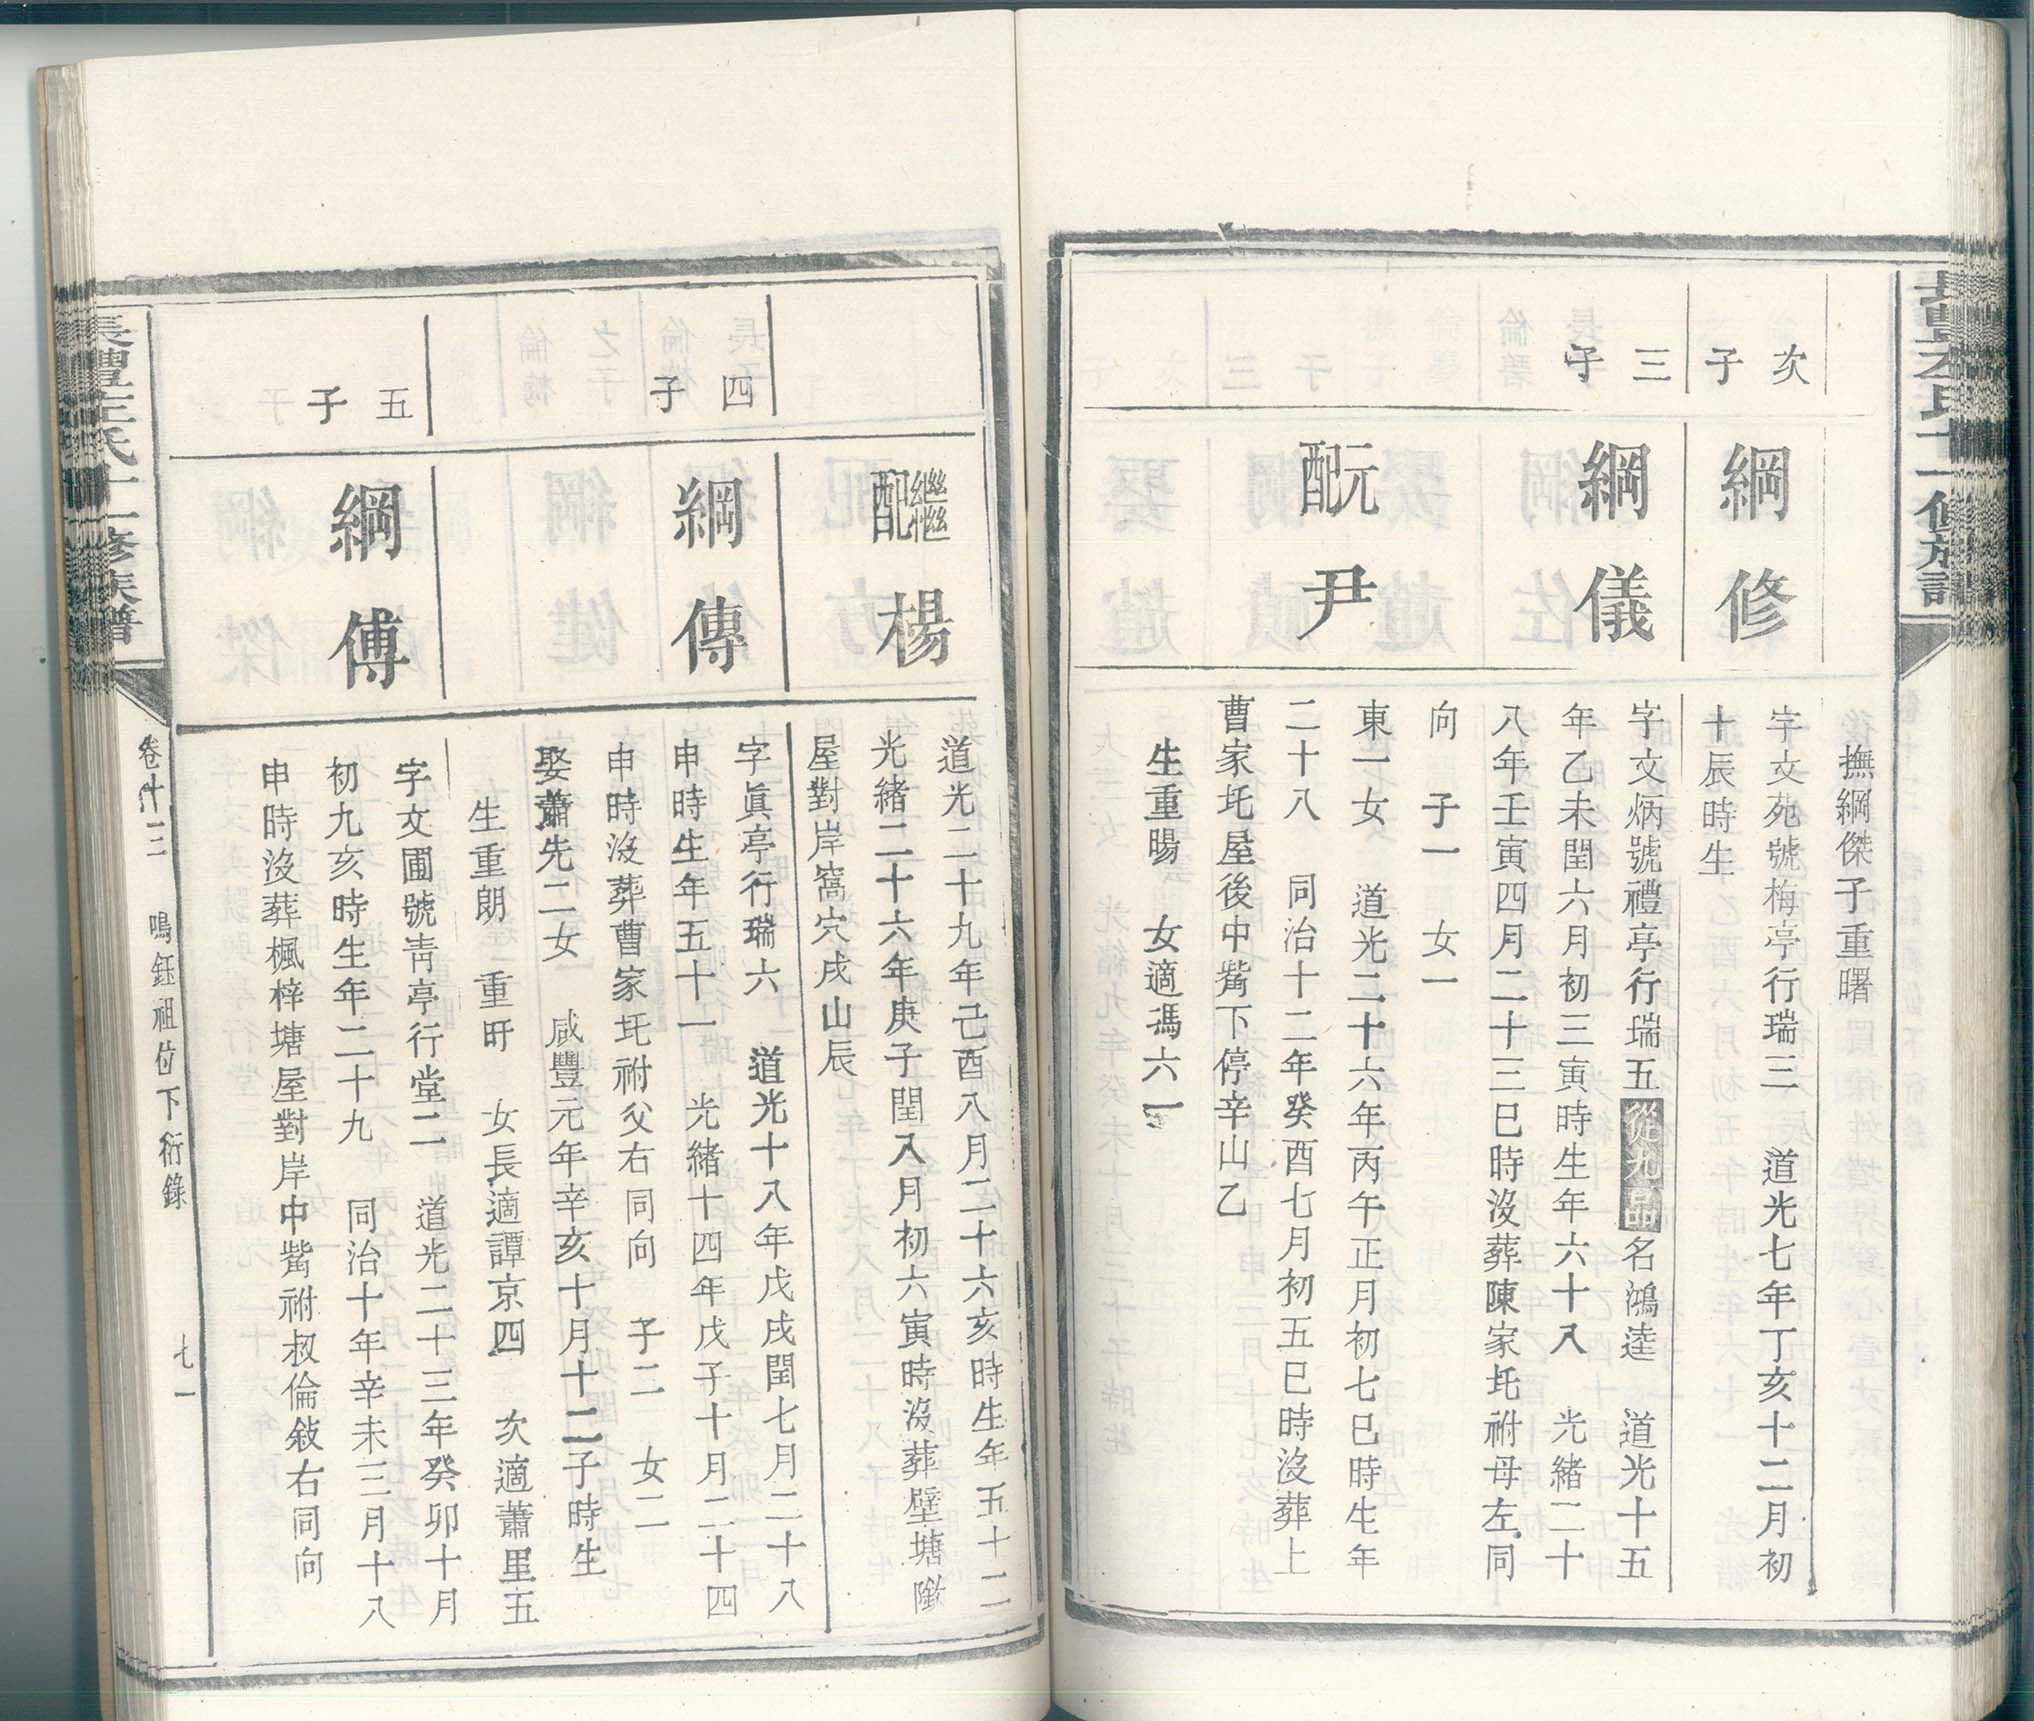 撫綱傑子重曙
次子
綱修
字文苑號梅亭行瑞三　道光七年丁亥十二月初
十辰時生
三子
綱儀
字文炳號禮亭行瑞五從九品名鴻逵　道光十五
年乙未閏六月初三寅時生年六十八　光緒二十
八年壬寅四月二十三巳時沒葬陳家坉祔母左同
向　子一　女一
元配尹
東一女　道光二十六年丙午正月初七巳時生年
二十八　同治十二年癸酉七月初五巳時沒葬上
曹家坉屋後中觜下停辛山乙
生重暘　女適馮六一
繼配楊
道光二十九年己酉八月二十六亥時生年五十二
光緒二十六年庚子閏八月初六寅時沒葬壁塘
屋對岸窩穴戌山辰
四子
綱傳
字眞亭行瑞六　道光十八年戊戌閏七月二十八
申時生年五十一　光緒十四年戊子十月二十四
申時沒葬曹家坉祔父右同向　子二　女二
娶蕭先二女　咸豐元年辛亥十月十二子時生
生重朗　重旴　女長適譚京四　次適蕭里五
五子
綱傅
字文圃號靑亭行堂二　道光二十三年癸卯十月
初九亥時生年二十九　同治十年辛未三月十八
申時沒葬楓梓塘屋對岸中觜祔叔倫敍右同向
左氏十一修族譜
卷十三　鳴鈺祖位下衍錄　七一